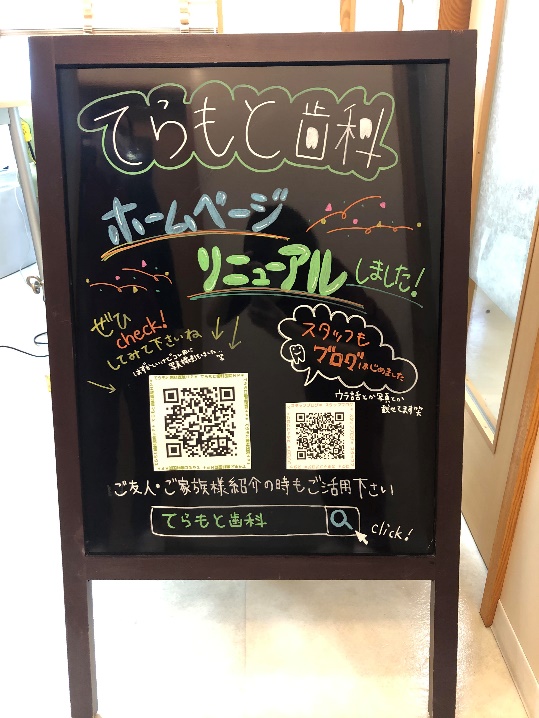 てらもと歯科
ホームページ
リニューアルしました!
ぜひ
check!
してみて下さいね
スタッフも
ブログはじめました
ウラ話とか写真とか
載せてます笑
ご友人・ご家族様紹介の時もご活用下さい
てらもと歯科
click!